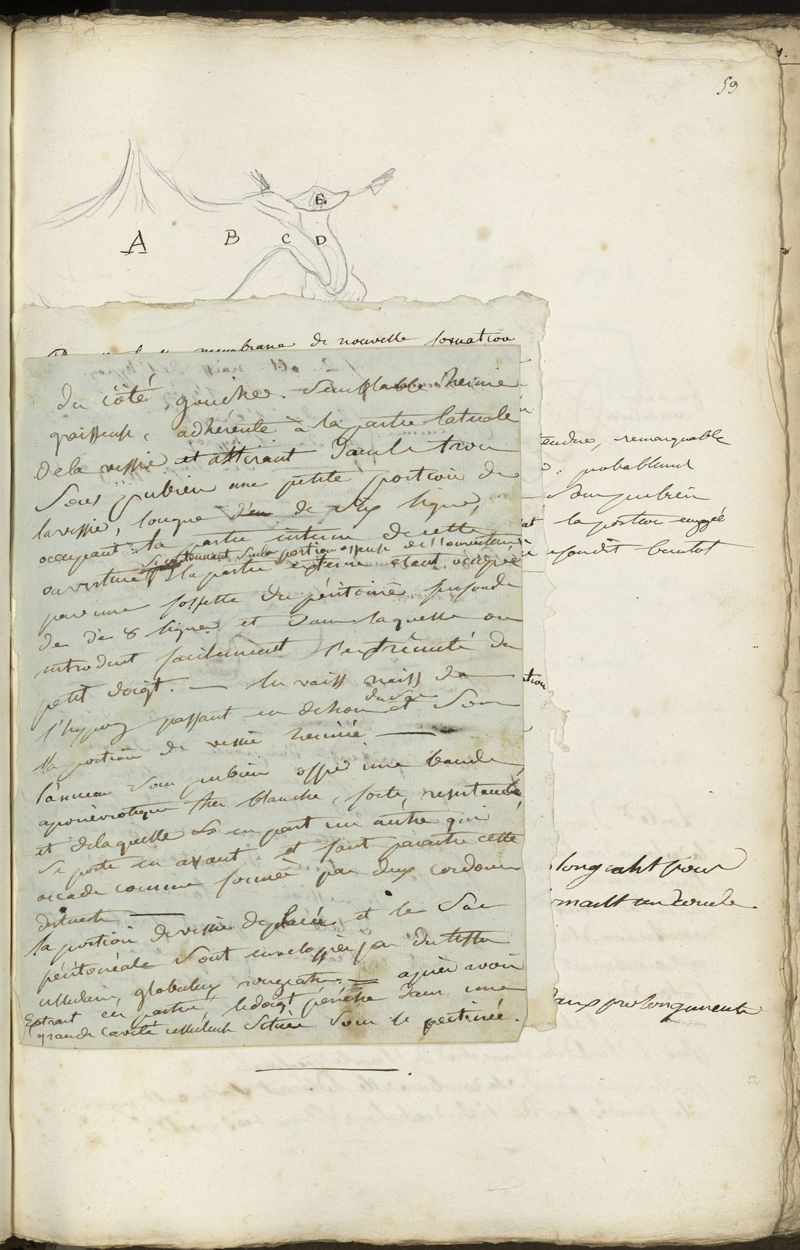 59
E
A B C D
membrane de nouvelle formation
du côté gauche. Semblable hernie
graisseuse, adhérente à la partie laterale
de la vessie et attirant dans le trou
Sous pubien une petite portion de
la vessie, longue de Six lignes,
occupant la partie interne de cette
portion osseuse de l'ouverture
ouverture la partie externe etant occupée
par une fossette du péritoine profonde
de de 8 lignes et dans laquelle on
introduit facilement l'extrêmité du
petit doigt. — les vaiss
du Sac
l'hypog passant en dehors et Sous
la portion de vessie herniée —
l'anneau Sous pubien offre une bande
aponévrotique très blanche, forte, resistante
et de laquelle il en part un autre qui
Se porte en avant et fait paraitre cette
arcade comme formée par deux cordons
distincts —
la portion de vessie deplacée et le Sac
péritonéale Sont enveloppés par du tissu
cellulaire, globuleux rougeatre. — après avoir
Extrait en partie, le doigt pénétre dans une
grande cavité celluleuse Située Sous le pectinée.
tendue, remarquable
probablement
Sous pubien
la portion engagée
bientot
tion
longeant pour
un cercle
prolongements